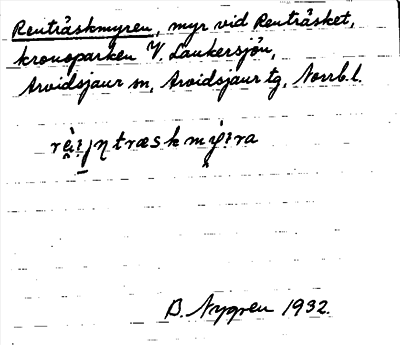 Renträskmyren, myr vid Renträsket,
kronoparken V. Laukersjön,
Arvidsjaur sn, Arvidsjaur tg, Norrb. l.
B. Nygren 1932.